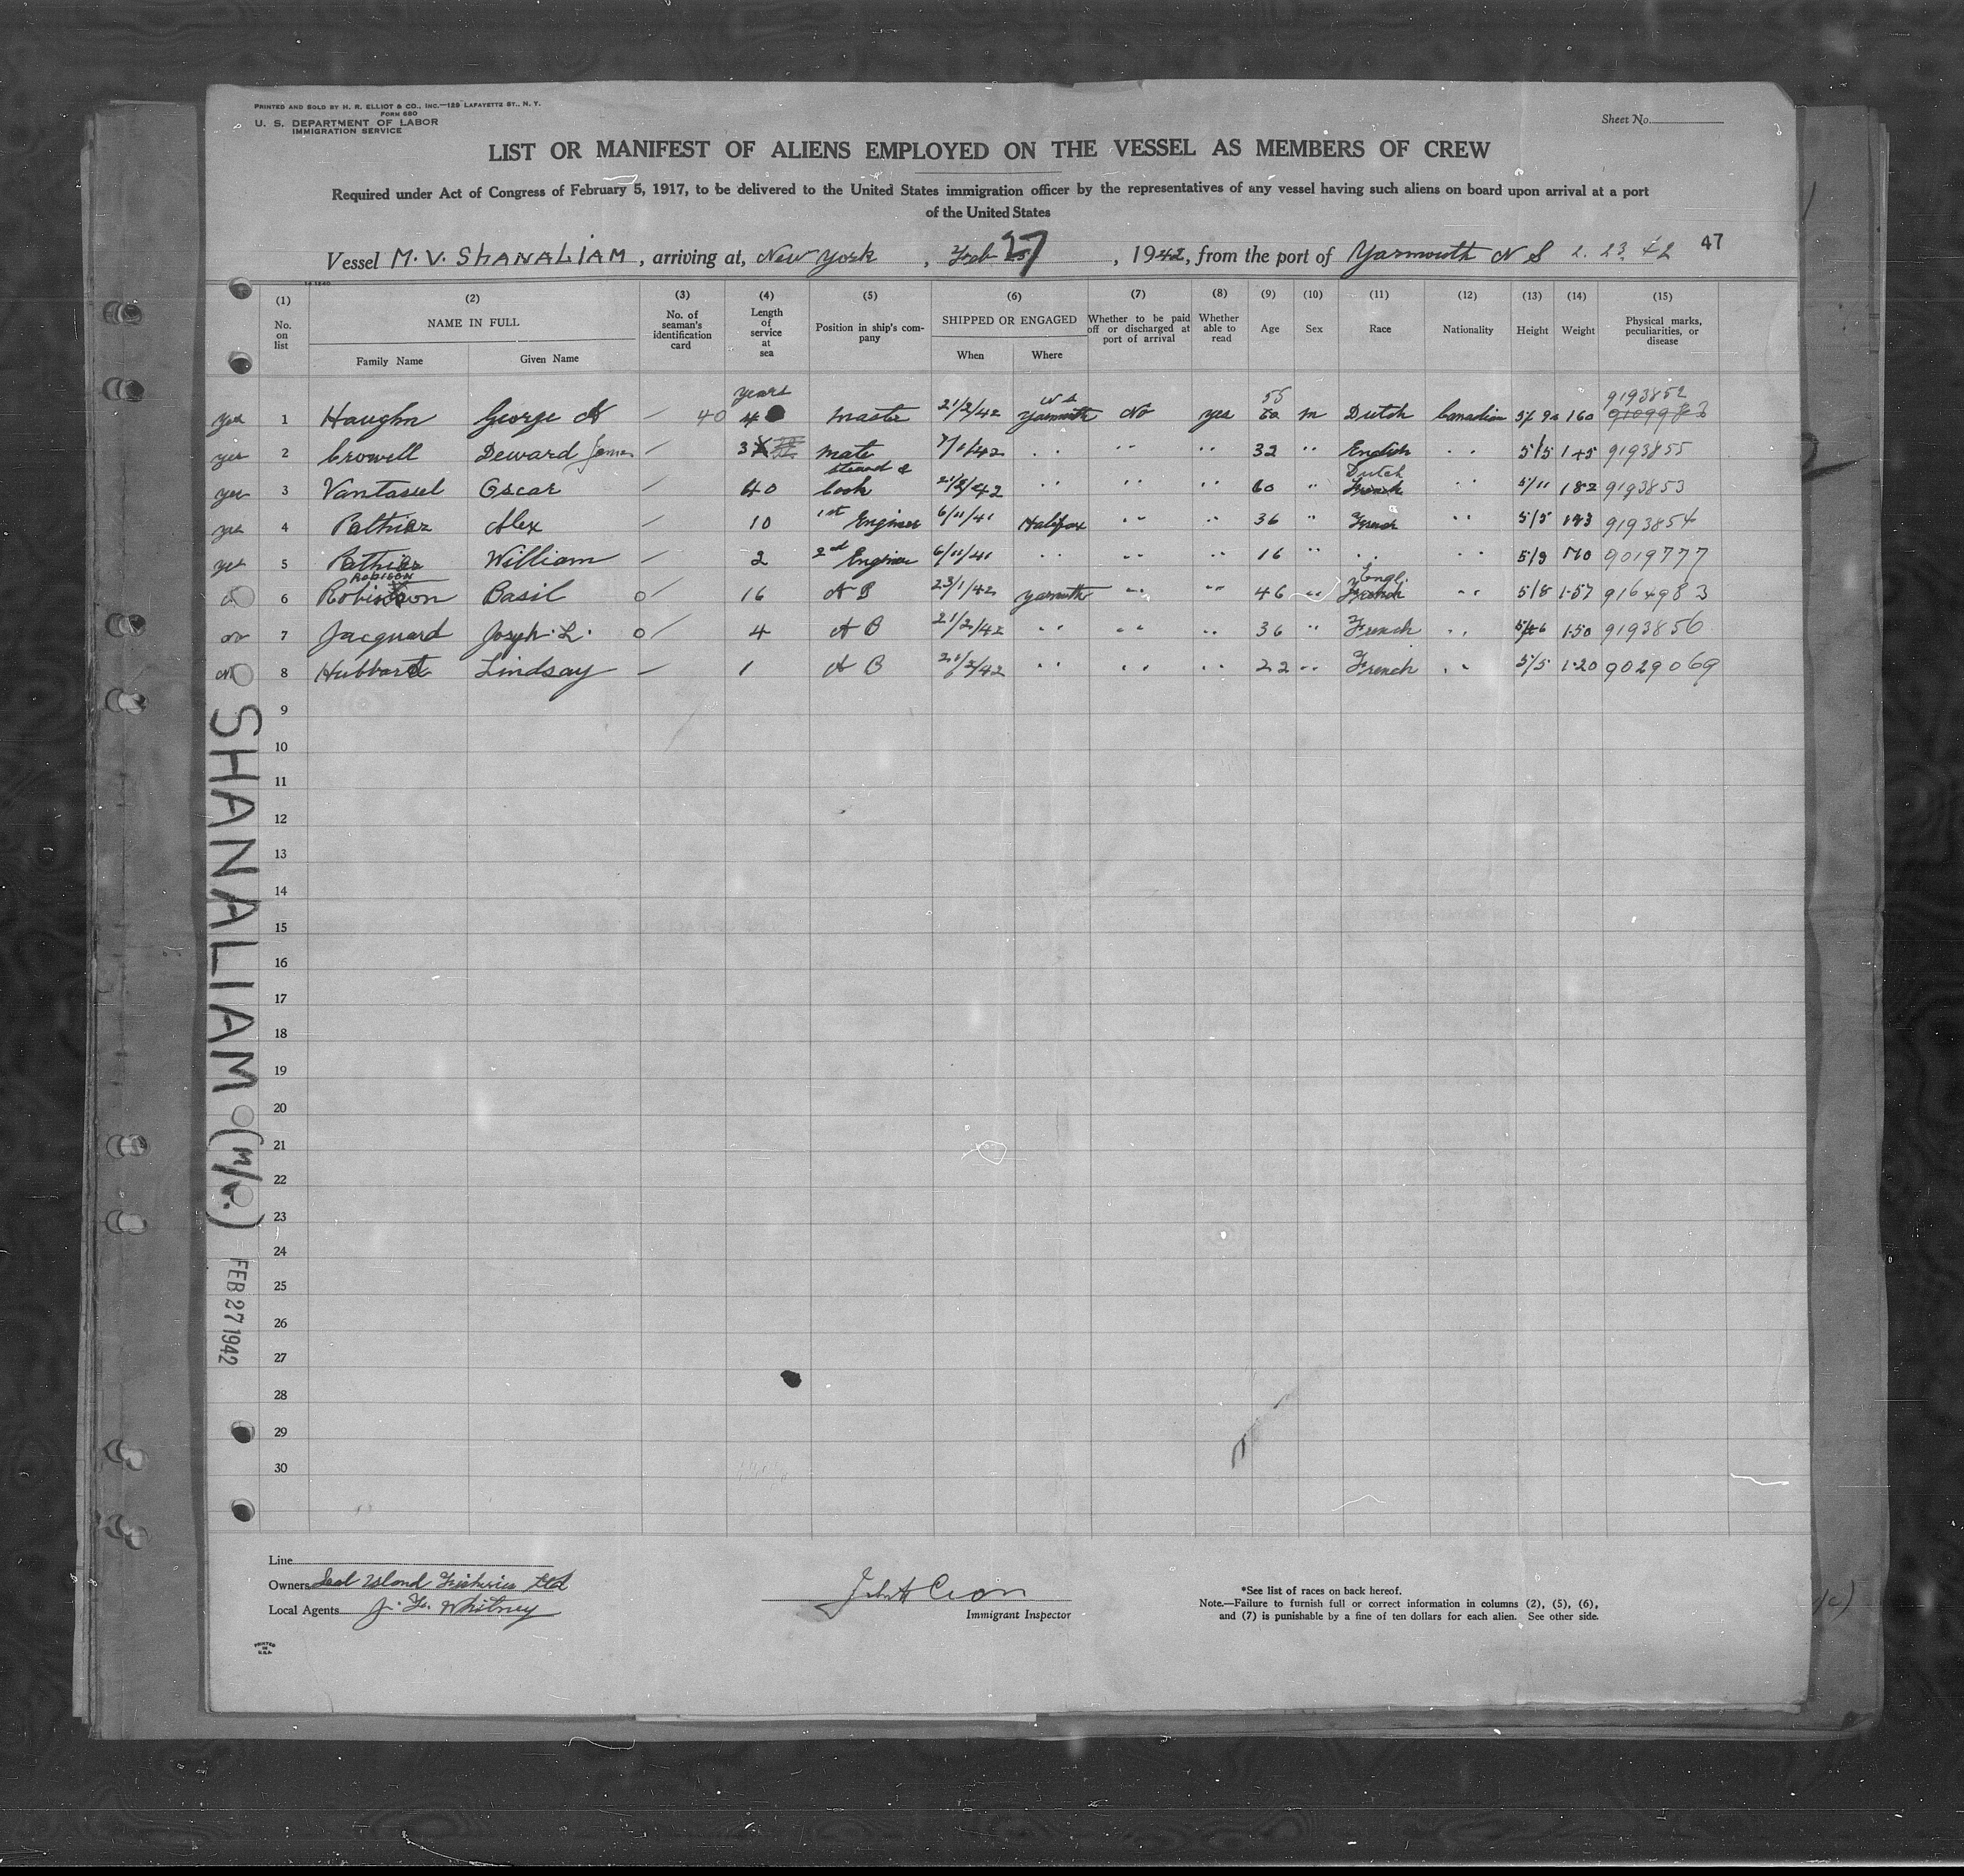 PRINTED AND SOLD BY H. R. ELLIOT & CO., INC.—129 LAFAYETTE ST., N. Y.
FORM 680
U. S. DEPARTMENT OF LABOR
IMMIGRATION SERVICE
Sheet No.
LIST OR MANIFEST OF ALIENS EMPLOYED ON THE VESSEL AS MEMBERS OF CREW
Required under Act of Congress of February 5, 1917, to be delivered to the United States immigration officer by the representatives of any vessel having such aliens on board upon arrival at a port
of the United States
Vessel M.V. SHANALIAM, arriving at, New York, Feb 27, 1942, from the port of Yarmouth N S 2. 23. 42 47
(1) (2) (3) (4) (5) (6) (7) (8) (9) (10) (11) (12) (13) (14) (15)
No. on list NAME IN FULL Family Name Given Name No. of seaman's identification card Length of service at sea Position in ship's company SHIPPED OR ENGAGED When Where Whether to be paid off or discharged at port of arrival Whether able to read Age Sex Race Nationality Height Weight Physical marks, peculiarities, or disease
years N S 55 9193852
yes 1 Haughn George A — 40 master 21/2/42 Yarmouth No yes m Dutch Canadian 160
yes 2 Crowell Deward James — mate 7/1/42 " " " 32 " English " 5/5 145 9193855
steward & Dutch
yes 3 Vantassel Oscar — 40 Cook 21/2/42 " " " 60 " French " 5/11 182 9193853
yes 4 Pothier Alex — 10 1st Engineer 6/11/41 Halifax " " 36 " French " 5/5 9193854
yes 5 Pothier William — 2 2nd Engineer 6/11/41 " " " 16 " " " 5/9 170 9019777
ROBISON Engl.
6 Robinson Basil 16 A B 23/1/42 Yarmouth " " 46 " French " 5/8 157 9164983
7 Jacquard Joseph. L. 4 A B 21/2/42 " " " 36 " French " 150 9193856
8 Hubbard Lindsay — 1 A B 21/2/42 " " " 22 " French " 5/5 120 9029069
9
10
11
12
13
14
15
16
17
18
19
20
21
22
23
24
25
26
27
28
29
30
SHANALIAM (M/V.)
FEB 27 1942
Line
Owners Seal Island Fisheries Ltd
Local Agents J. L. Whitney
Immigrant Inspector
*See list of races on back hereof.
Note.—Failure to furnish full or correct information in columns (2), (5), (6),
and (7) is punishable by a fine of ten dollars for each alien. See other side.
PRINTED
IN
U.S.A.